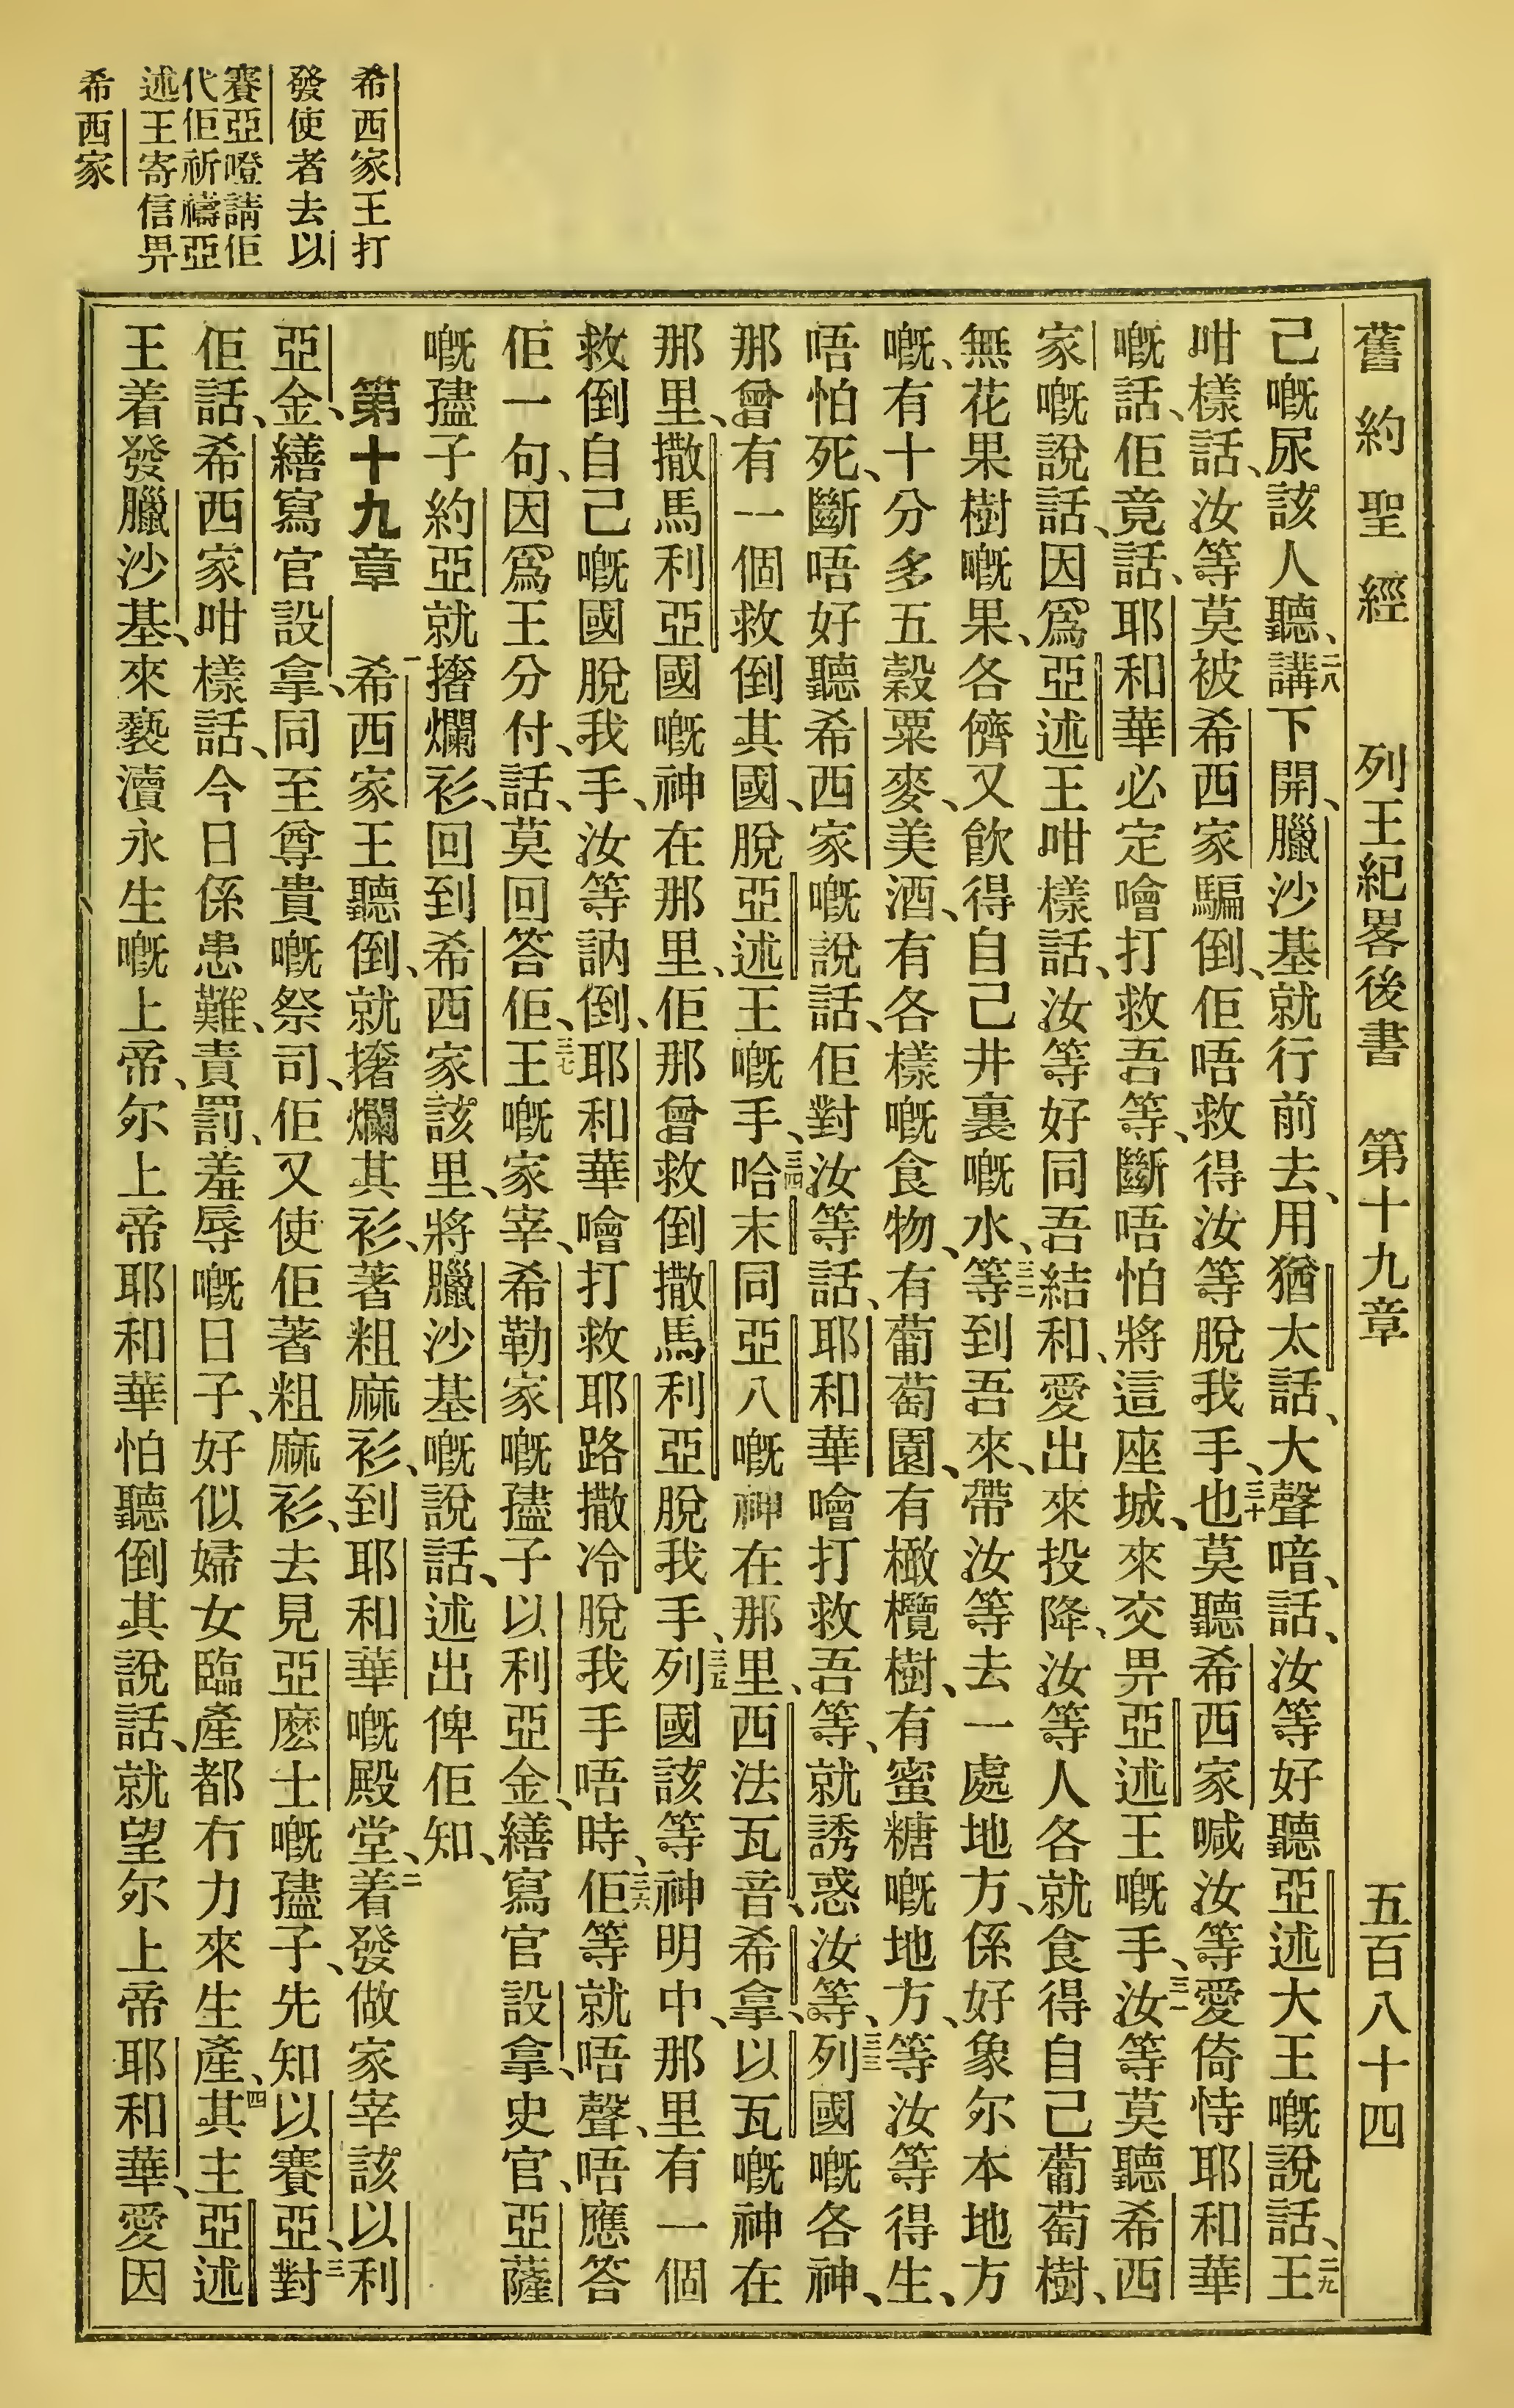 舊約聖經　列王紀畧後書　第十九章　五百八十四
己嘅尿該人聽、二八講下開、臘沙基就行前去、用猶太話、大聲喑、話、汝等好聽亞述大王嘅說話、二九王
咁樣話、汝等莫被希西家騙倒、佢唔救得汝等脫我手、三十也莫聽希西家喊汝等愛倚恃耶和華
嘅話、佢竟話、耶和華必定噲打救吾等、斷唔怕將這座城、來交畀亞述王嘅手、三一汝等莫聽希西
家嘅說話、因爲亞述王咁樣話、汝等好同吾結和、愛出來投降、汝等人各就食得自己葡萄樹、
無花果樹嘅果、各儕又飲得自己井裏嘅水、三二等到吾來、帶汝等去一處地方、係好象尔本地方
嘅、有十分多五穀粟麥、美酒、有各樣嘅食物、有葡萄園、有橄欖樹、有蜜糖嘅地方、等汝等得生、
唔怕死、斷唔好聽希西家嘅說話、佢對汝等話、耶和華噲打救吾等、就誘惑汝等、三三列國嘅各神、
那曾有一個救倒其國、脫亞述王嘅手、三四哈末同亞八嘅神在那里、西法瓦音、希拿、以瓦嘅神在
那里、撒馬利亞國嘅神在那里、佢那曾救倒撒馬利亞脫我手、三五列國該等神明中、那里有一個
救倒自己嘅國脫我手、汝等訥倒、耶和華噲打救耶路撒冷脫我手唔時、三六佢等就唔聲、唔應答
佢一句、因爲王分付、話、莫回答佢、三七王嘅家宰、希勒家嘅孻子以利亞金、繕寫官設拿、史官、亞薩
嘅孻子約亞就撦爛衫、回到希西家該里、將臘沙基嘅說話、述出俾佢知、
第十九章　一希西家王聽倒、就撦爛其衫、著粗麻衫、到耶和華嘅殿堂、二着發做家宰該以利
亞金、繕寫官設拿、同至尊貴嘅祭司、佢又使佢著粗麻衫、去見亞麽士嘅孻子、先知以賽亞、三對
佢話、希西家咁樣話、今日係患難、責罰、羞辱嘅日子、好似婦女臨產都冇力來生產、四其主亞述
王着發臘沙基、來褻瀆永生嘅上帝、尔上帝耶和華怕聽倒其說話、就望尔上帝耶和華、愛因
希西家王打
發使者去以
賽亞噔請佢
代佢祈禱亞
述王寄信畀
希西家